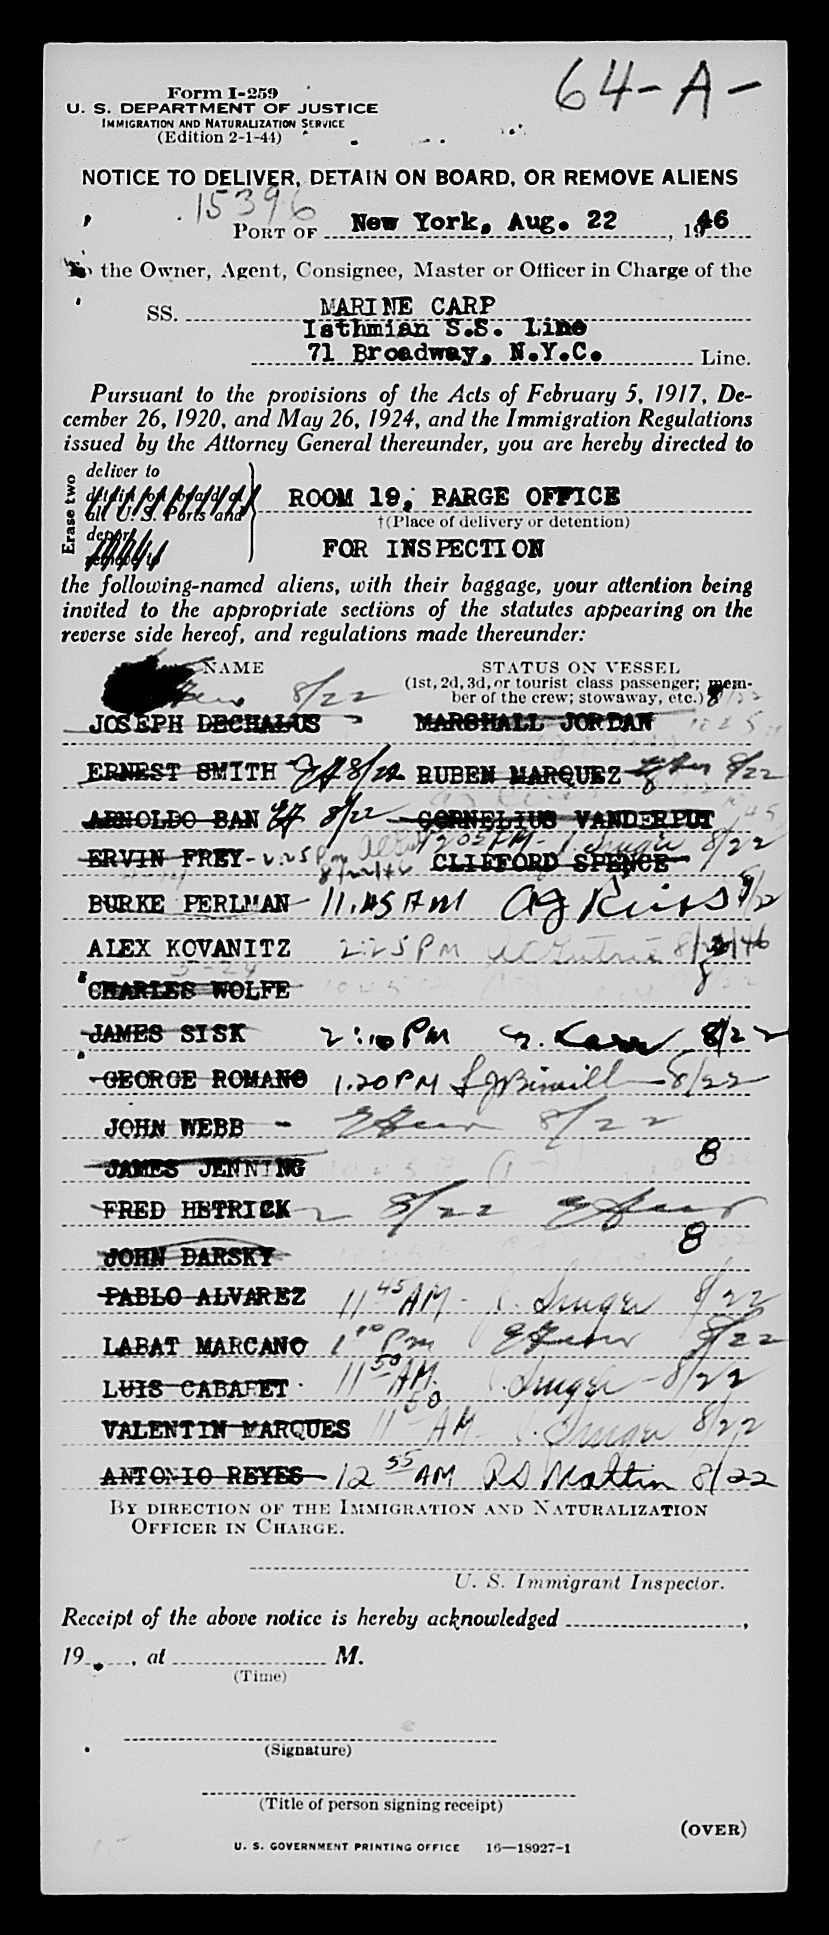 64-A-
Form I-259
U. S. DEPARTMENT OF JUSTICE
IMMIGRATION AND NATURALIZATION SERVICE
(Edition 2-1-44)
NOTICE TO DELIVER, DETAIN ON BOARD, OR REMOVE ALIENS
15396
PORT OF New York, Aug. 22, 1946
To the Owner, Agent, Consignee, Master or Officer in Charge of the
SS. MARINE CARP
Isthmian S.S. Line
71 Broadway, N.Y.C. Line.
Pursuant to the provisions of the Acts of February 5, 1917, De-
cember 26, 1920, and May 26, 1924, and the Immigration Regulations
issued by the Attorney General thereunder, you are hereby directed to
Erase two
deliver to
detain on board at
all U. S. Ports and
deport
remove to
ROOM 19, BARGE OFFICE
†(Place of delivery or detention)
FOR INSPECTION
the following-named aliens, with their baggage, your attention being
invited to the appropriate sections of the statutes appearing on the
reverse side hereof, and regulations made thereunder:
NAME
STATUS ON VESSEL
(1st, 2d, 3d, or tourist class passenger; mem-
ber of the crew; stowaway, etc.)
8/22
JOSEPH DECHALUS MARSHALL JORDAN
ERNEST SMITH 8/22 RUBEN MARQUEZ 8/22
ARNOLDO BAN 8/22 CORNELIUS VANDERPUT
12 05 PM 8/22
ERVIN FREY 2.25 Pm 8/22/46 CLIFFORD SPENCE
BURKE PERLMAN 11.45 AM 8/22
ALEX KOVANITZ 2:25 PM 8/22/46
CHARLES WOLFE
JAMES SISK 2:10 PM 8/22
GEORGE ROMANO 1.20 PM 8/22
JOHN WEBB - 8/22
JAMES JENNING 8
FRED HETRICK 8/22
JOHN DARSKY 8
PABLO ALVAREZ 11 45 AM - 8/22
LABAT MARCANO 1 10 Pm 8/22
LUIS CABARET 11 50 AM. 8/22
VALENTIN MARQUES 11 50 AM 8/22
ANTONIO REYES 12 55 AM 8/22
BY DIRECTION OF THE IMMIGRATION AND NATURALIZATION
OFFICER IN CHARGE.
U. S. Immigrant Inspector.
Receipt of the above notice is hereby acknowledged ,
19 , at M.
(Time)
(Signature)
(Title of person signing receipt)
(OVER)
U. S. GOVERNMENT PRINTING OFFICE 16—18927-1